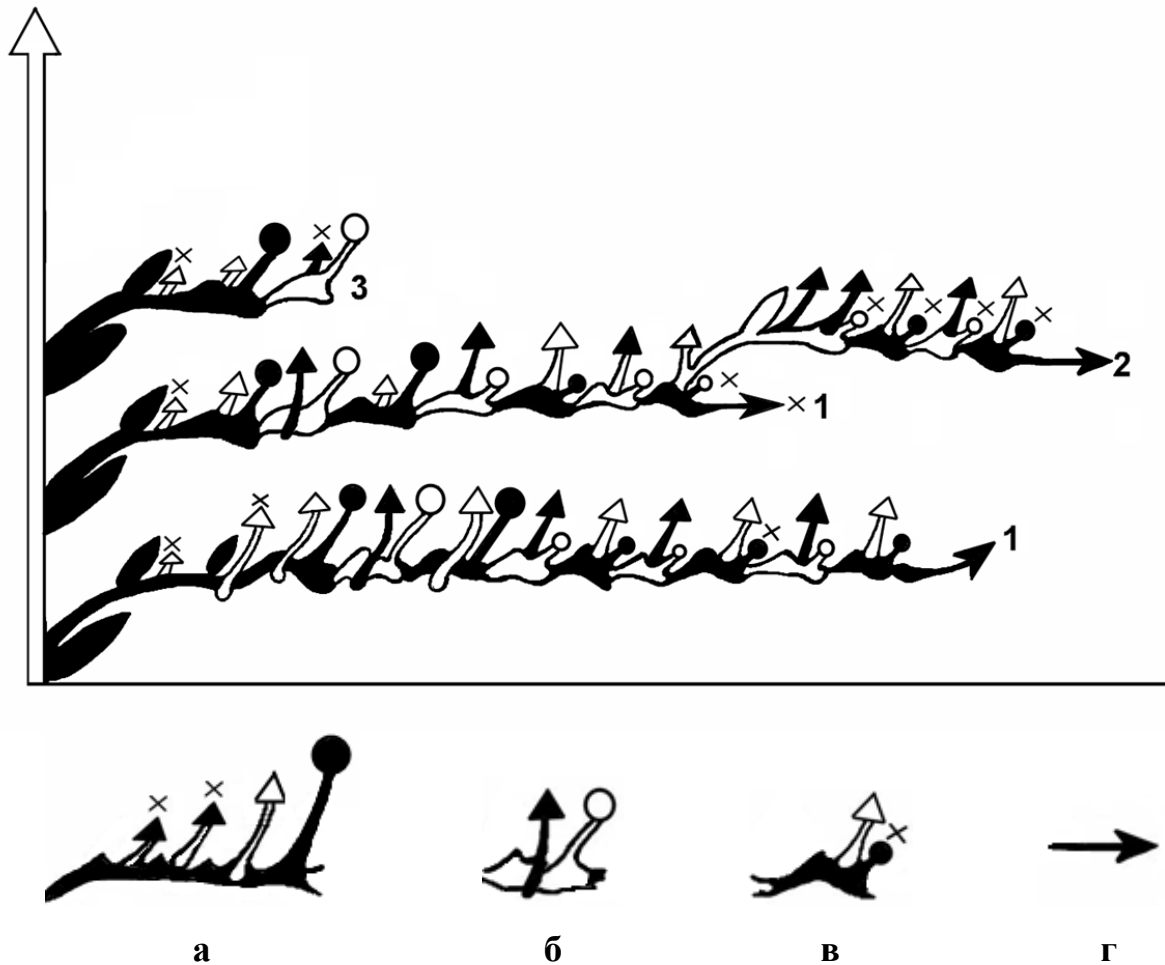 3
2
1
1
а б в г